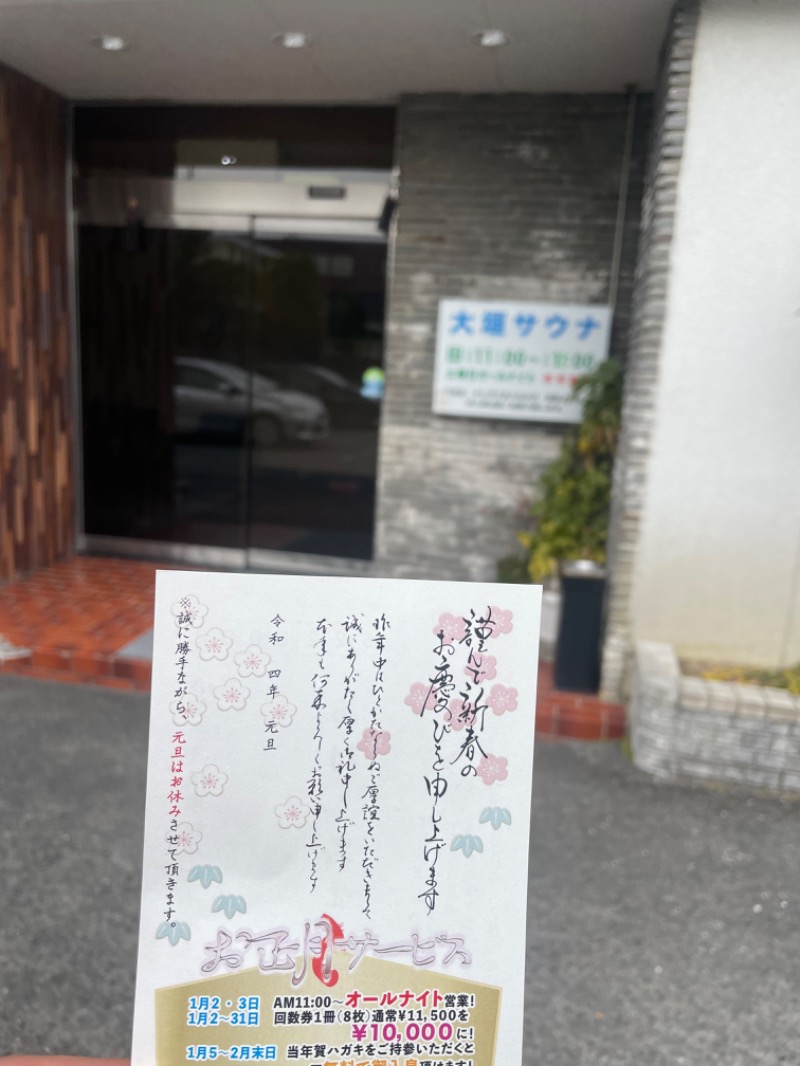 大垣サウナ
謹んで新春の
お慶びを申し上げます
昨年中はひとかたならぬご厚誼をいただきまして
誠にありがたく厚く御礼申し上げます
本年も何卒よろしくお願い申し上げます
令和 四年 元旦
※誠に勝手ながら、元旦はお休みさせて頂きます。
お正月サービス
1月2・3日 AM11:00～オールナイト営業!
1月2～31日 回数券1冊(8枚)通常¥11,500を
¥10,000に!
1月5～2月末日 当年賀ハガキをご持参いただくと
無料で御入泉頂けます!